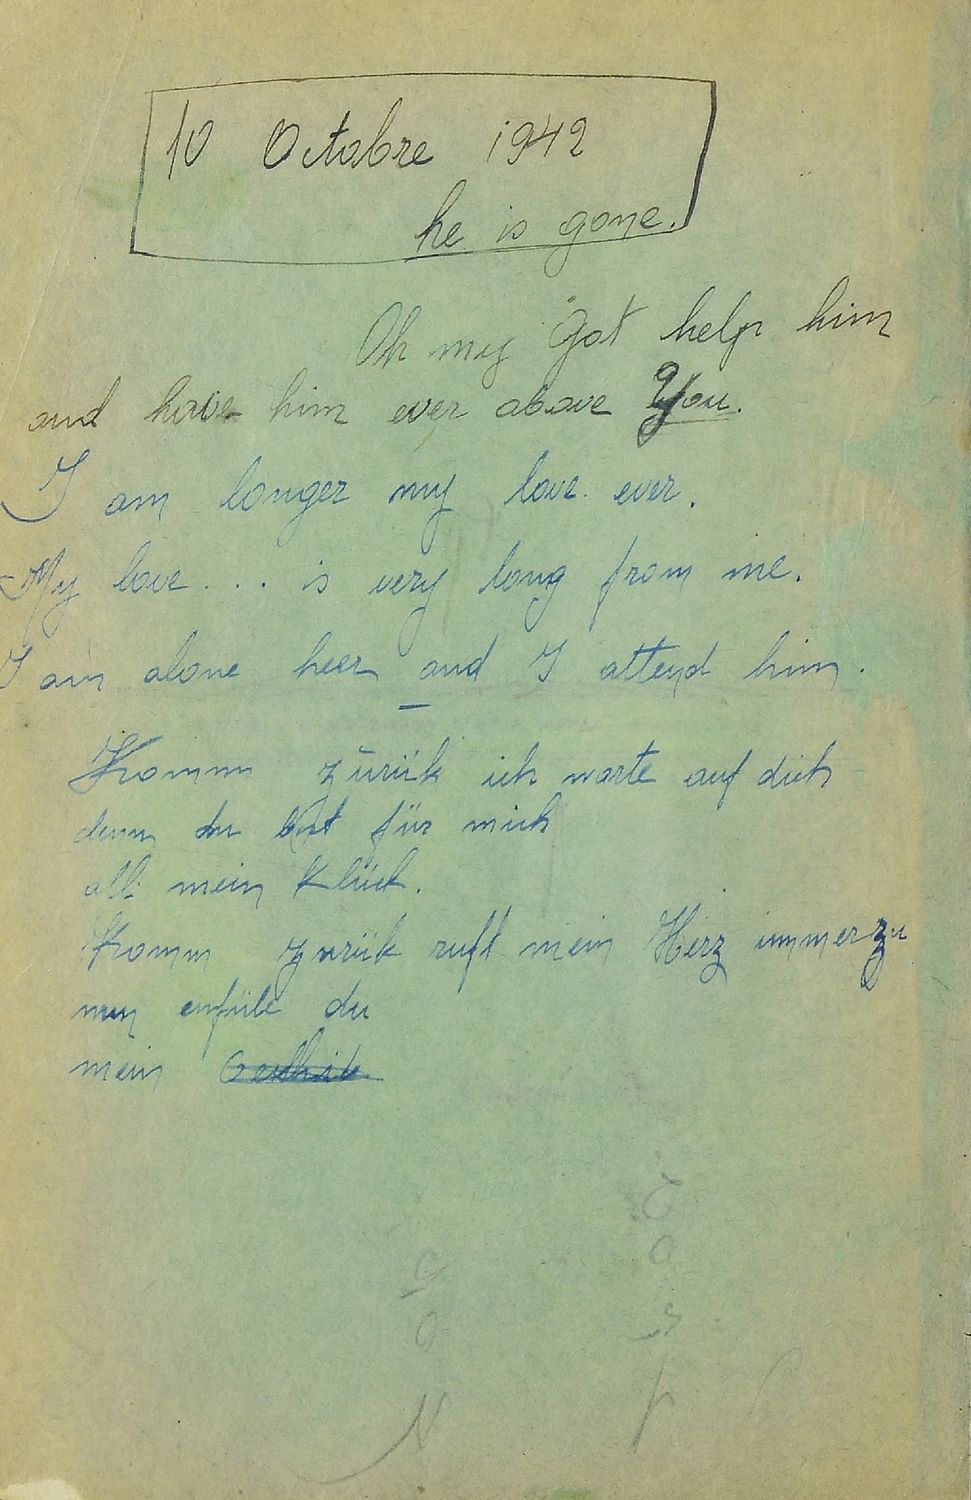 10 Octobre 1942
he is gone.
Oh my Got help him
and have him ever above You.
I am longer my love ever.
My love... is very long from me.
I am alone heer and I attend him.
Komm zurük ich warte auf dich
denn du bist für mich
all mein Klück.
Komm zurük ruft mein Herz immerzu
nun erfüle du
mein